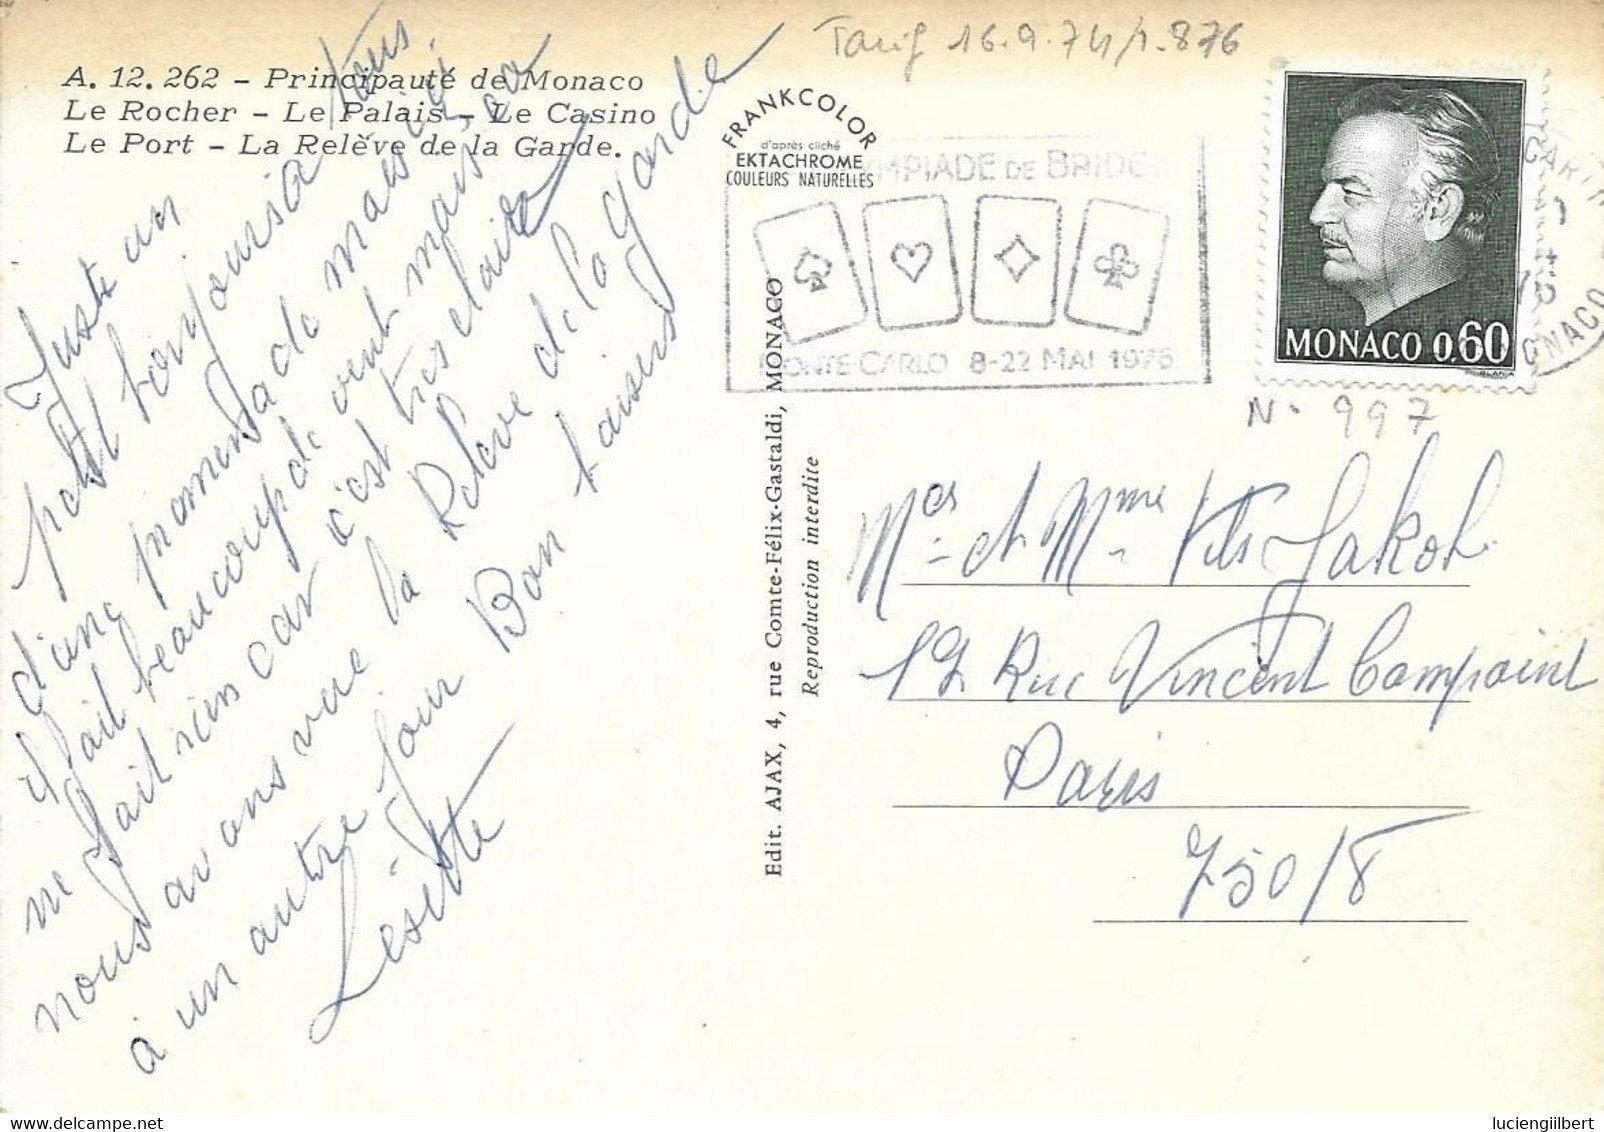 Tarif 16.9.74/1.876
A. 12. 262 – Principauté de Monaco
Le Rocher – Le Palais – Le Casino
Le Port – La Relève de la Garde.
FRANKCOLOR
d'après cliché
EKTACHROME
COULEURS NATURELLES
MPIADE DE BRIDGE
MONTE-CARLO 8-22 MAI 1976
MONACO 0,60
N. 997
Juste un
petit bonjour à tous
d'une promenade mais ici
il fait beaucoup de vent mais ça
ne fait rien car c'est très claire
nous avons vue la Relève de la garde
à un autre jour Bon baisers
Lesette
Edit. AJAX, 4, rue Comte-Félix-Gastaldi, MONACO
Reproduction interdite
et Mme Jakob
12 Rue Vincent Compoint
Paris
75018
luciengilbert